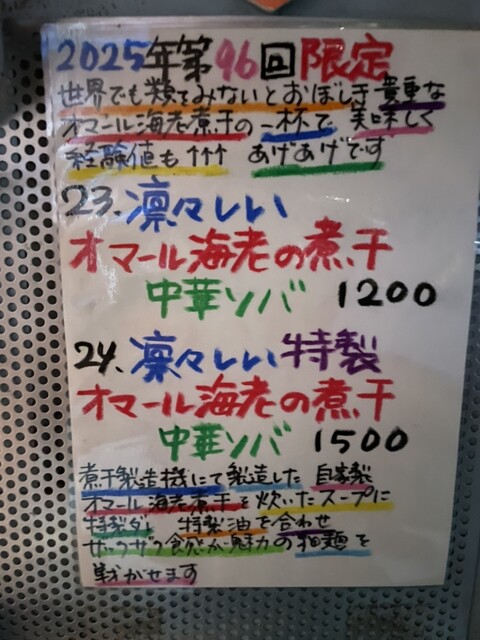 2025年第96回限定
世界でも類てみないとおぼしき貴重な
オマール海老煮干の一杯で 美味しく
経験値も↑↑↑ あげあげです
23.凛々しい
オマール海老の煮干
中華ソバ 1200
24.凛々しい特製
オマール海老の煮干
中華ソバ 1500
煮干製造機にて製造した 自家製
オマール海老煮干を炊いたスープに
特製ダレ 特製油を合わせ
ザクザク食感が魅力の細麺を
泳がせます